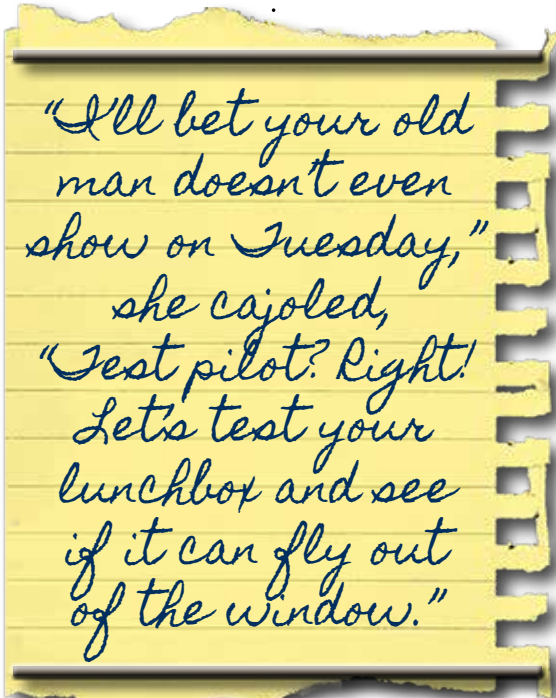 "I'll bet your old
man doesn't even
show on Tuesday,"
she cajoled,
"Test pilot? Right!
Let's test your
lunchbox and see
if it can fly out
of the window."